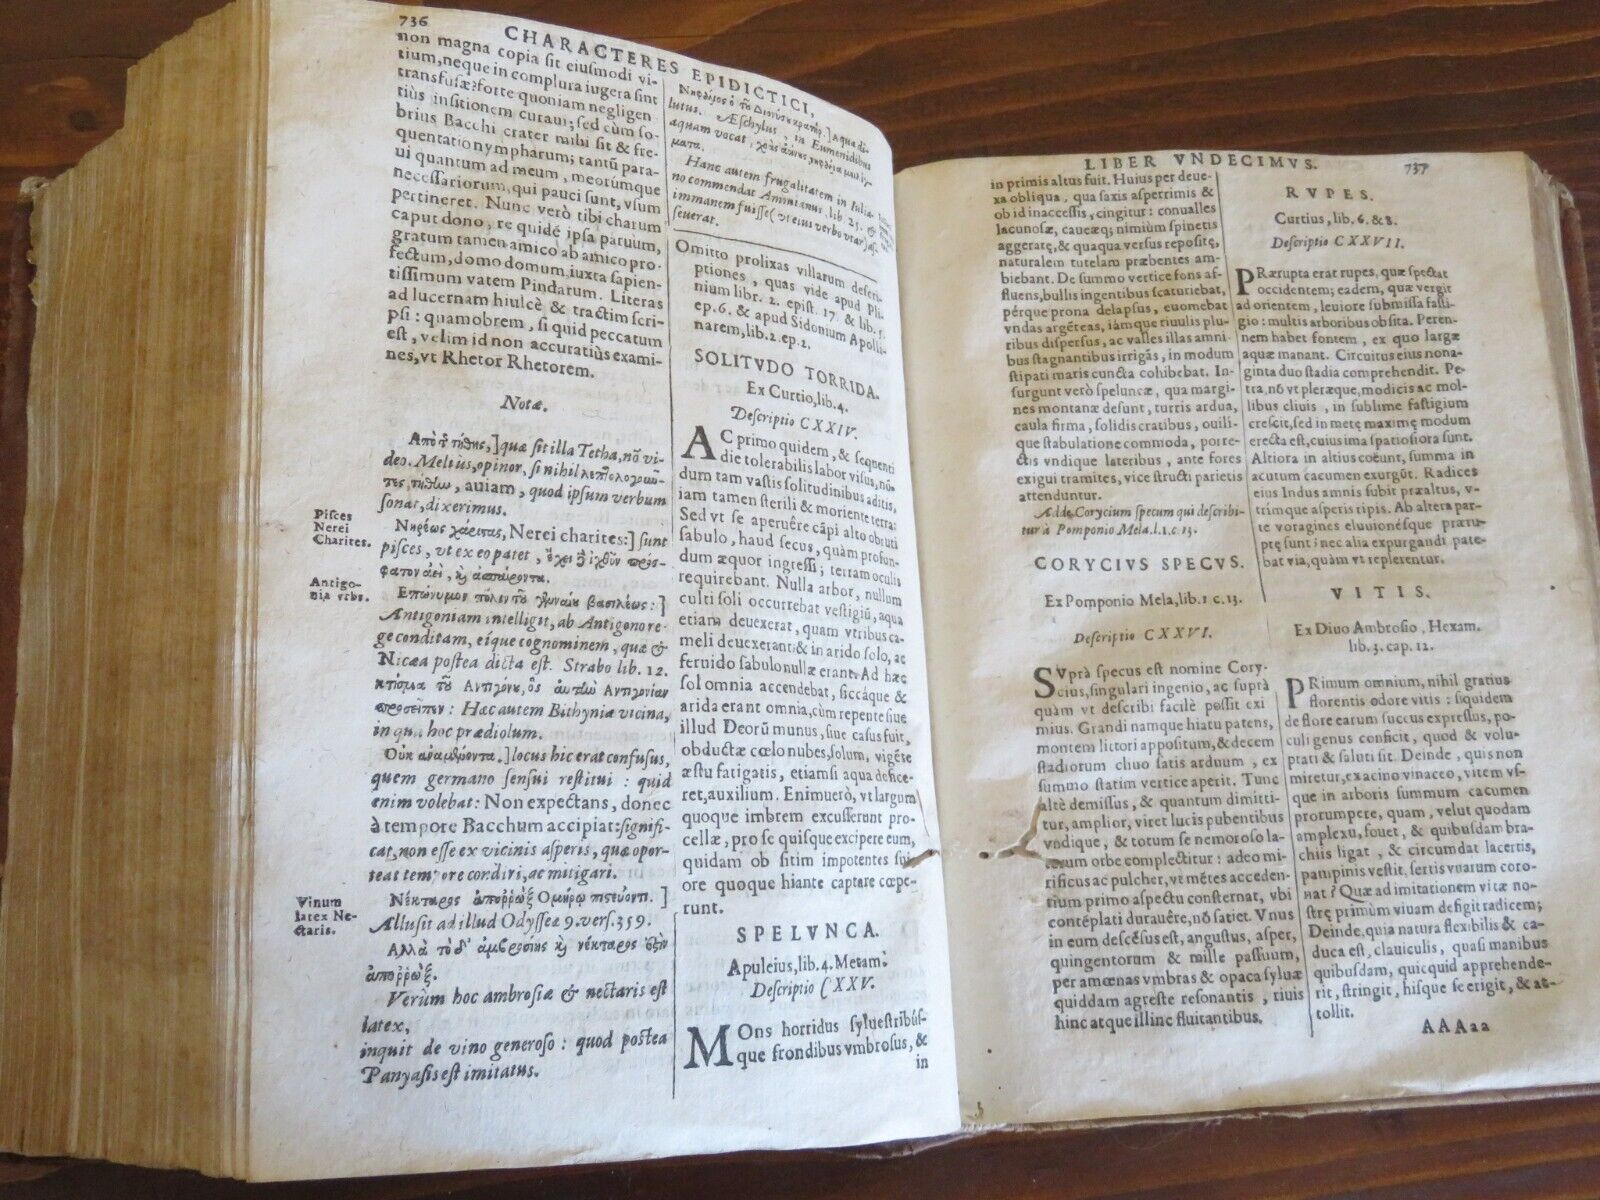 736
CHARACTERES EPIDICTICI,
non magna copia sit eiusmodi vi-
tium, neque in complura iugera sint
transfusæ? forte quoniam negligen
tiùs insitionem curaui; sed cùm so-
brius Bacchi crater mihi sit & fre-
quentatio nympharum; tantũ para-
ui quantum ad meum, meorúmque
necessariorum, qui pauci sunt, vsum
pertineret. Nunc verò tibi charum
caput dono, re quidẽ ipsa paruum,
gratum tamen amico ab amico pro-
fectum, domo domum iuxta sapien-
tissimum vatem Pindarum. Literas
ad lucernam hiulcè & tractim scri-
psi: quamobrem, si quid peccatum
est, velim id non accuratiùs exami-
nes, vt Rhetor Rhetorem.
Notæ.
Απὸ τ͂ τήθης,] quæ sit illa Tetha, nõ vi-
deo. Meliùs, opinor, si nihil
auiam, quod ipsum verbum
sonat, dixerimus.
Pisces
Nerei
Charites.
Νηρέως χάριτας, Nerei charites:] sunt
pisces, vt ex eo patet,
Antigo-
nia vrbs.
Επώνυμον πόλιν τοῦ βασιλέως:]
Antigoniam intelligit, ab Antigono re-
ge conditam, eíque cognominem, quæ &
Nicæa postea dicta est. Strabo lib. 12.
κτίσμα τοῦ Αντιγόνου, ὃς αὐτὴν Αντιγονίαν
προσεῖπεν: Hæc autem Bithyniæ vicina,
in qua hoc prædiolum.
Οὐκ] locus hic erat confusus,
quem germano sensui restitui: quid
enim volebat: Non expectans, donec
à tempore Bacchum accipiat: signifi-
cat, non esse ex vicinis asperis, quæ opor-
teat tempore condiri, ac mitigari.
Vinum
latex Ne-
ctaris.
Νέκταρος ἀποῤῥὼξ Ομήρῳ πιστεύοντι.]
Allusit ad illud Odysseæ 9. vers. 359.
Αλλὰ τὸ δ' ἀμβροσίης καὶ νέκταρος ἐστὶν
ἀποῤῥὼξ.
Verùm hoc ambrosiæ & nectaris est
latex,
inquit de vino generoso: quod postea
Panyasis est imitatus.
Aqua di-
lutus. Æschylus, in Eumenidibus
aquam vocat,
ματα.
Hanc autem frugalitatem in Iulia-
no commendat Aminianus, lib. 25. &
immanem fuisse (vt eius verbo vtar) as-
seuerat.
Omitto prolixas villarum descri-
ptiones, quas vide apud Pli-
nium libr. 2. epist. 17. & lib. 5.
ep. 6. & apud Sidonium Apolli-
narem, lib. 2. ep. 2.
SOLITVDO TORRIDA.
Ex Curtio, lib. 4.
Descriptio CXXIV.
AC primo quidem, & sequenti
die tolerabilis labor visus, nõ-
dum tam vastis solitudinibus aditis,
iam tamen sterili & moriente terra:
Sed vt se aperuêre cãpi alto obruti
sabulo, haud secus, quàm profun-
dum æquor ingressi; terram oculis
requirebant. Nulla arbor, nullum
culti soli occurrebat vestigiũ, aqua
etiam deuexerat, quam vtribus ca-
meli deuexerant: & in arido solo, ac
feruido sabulo nullæ erant. Ad hæc
sol omnia accendebat, siccáque &
arida erant omnia, cùm repente siue
illud Deorũ munus, siue casus fuit,
obductæ cœlo nubes, solum, vigẽse
æstu fatigatis, etiamsi aqua defice-
ret, auxilium. Enimuerò, vt largum
quoque imbrem excusserunt pro-
cellæ, pro se quisque excipere eum,
quidam ob sitim impotentes sui,
ore quoque hiante captare cœpe-
runt.
SPELVNCA.
Apuleius, lib. 4. Metam.
Descriptio CXXV.
MOns horridus syluestribús-
que frondibus vmbrosus, &
in
LIBER VNDECIMVS. 737
in primis altus fuit. Huius per deue-
xa obliqua, qua saxis asperrimis &
ob id inaccessis, cingitur: conualles
lacunosæ, caueæq; nimium spinetis
aggeratę, & quaqua versus repositę,
naturalem tutelam præbentes am-
biebant. De summo vertice fons af-
fluens, bullis ingentibus scaturiebat,
pérque prona delapsus, euomebat
vndas argẽteas, iámque riuulis plu-
ribus dispersus, ac valles illas amni-
bus stagnantibus irrigãs, in modum
stipati maris cuncta cohibebat. In-
surgunt verò speluncæ, qua margi-
nes montanæ desunt, turris ardua,
caula firma, solidis cratibus, ouili-
que stabulatione commoda, porre-
ctis vndique lateribus, ante fores
exigui tramites, vice structi parietis
attenduntur.
Adde, Corycium specum qui describi-
tur à Pomponio Mela. l. 1. c. 13.
CORYCIVS SPECVS.
Ex Pomponio Mela, lib. 1 c. 13.
Descriptio CXXVI.
SVprà specus est nomine Cory-
cius, singulari ingenio, ac suprà
quàm vt describi facilè possit exi
mius. Grandi namque hiatu patens,
montem littori appositum, & decem
stadiorum cliuo satis arduum, ex
summo statim vertice aperit. Tunc
altè demissus, & quantum dimitti-
tur, amplior, viret lucis pubentibus
vndique, & totum se nemoroso la-
terum orbe complectitur: adeo mi-
rificus ac pulcher, vt mẽtes acceden-
tium primo aspectu consternat, vbi
contẽplati durauêre, nõ satiet. Vnus
in eum descẽsus est, angustus, asper,
quingentorum & mille passuum,
per amœnas vmbras & opaca syluæ
quiddam agreste resonantis, riuis
hinc atque illinc fluitantibus.
RVPES.
Curtius, lib. 6. & 8.
Descriptio CXXVII.
PRærupta erat rupes, quæ spectat
occidentem; eadem, quæ vergit
ad orientem, leuiore submissa fasti-
gio: multis arboribus obsita. Peren-
nem habet fontem, ex quo largæ
aquæ manant. Circuitus eius nona-
ginta duo stadia comprehendit. Pe-
tra, nõ vt pleræque, modicis ac mol-
libus cliuis, in sublime fastigium
crescit, sed in metę maximę modum
erecta est, cuius ima spatiosiora sunt.
Altiora in altius coëunt, summa in
acutum cacumen exurgũt. Radices
eius Indus amnis subit præaltus, v-
trimque asperis ripis. Ab altera par-
te voragines eluuionésque præru-
ptę sunt: nec alia expurgandi pate-
bat via, quàm vt replerentur.
VITIS.
Ex Diuo Ambrosio, Hexam.
lib. 3. cap. 12.
PRimum omnium, nihil gratius
florentis odore vitis: siquidem
de flore earum succus expressus, po-
culi genus conficit, quod & volu-
ptati & saluti sit. Deinde, quis non
miretur, ex acino vinacco, vitem vs-
que in arboris summum cacumen
prorumpere, quam, velut quodam
amplexu, fouet, & quibusdam bra-
chiis ligat, & circumdat lacertis,
pampinis vestit, sertis vuarum coro-
nat? Quæ ad imitationem vitæ no-
strę primùm viuam defigit radicem;
Deinde, quia natura flexibilis & ca-
duca est, clauiculis, quasi manibus
quibusdam, quicquid apprehende-
rit, stringit, hisque se erigit, & at-
tollit.
AAAaa